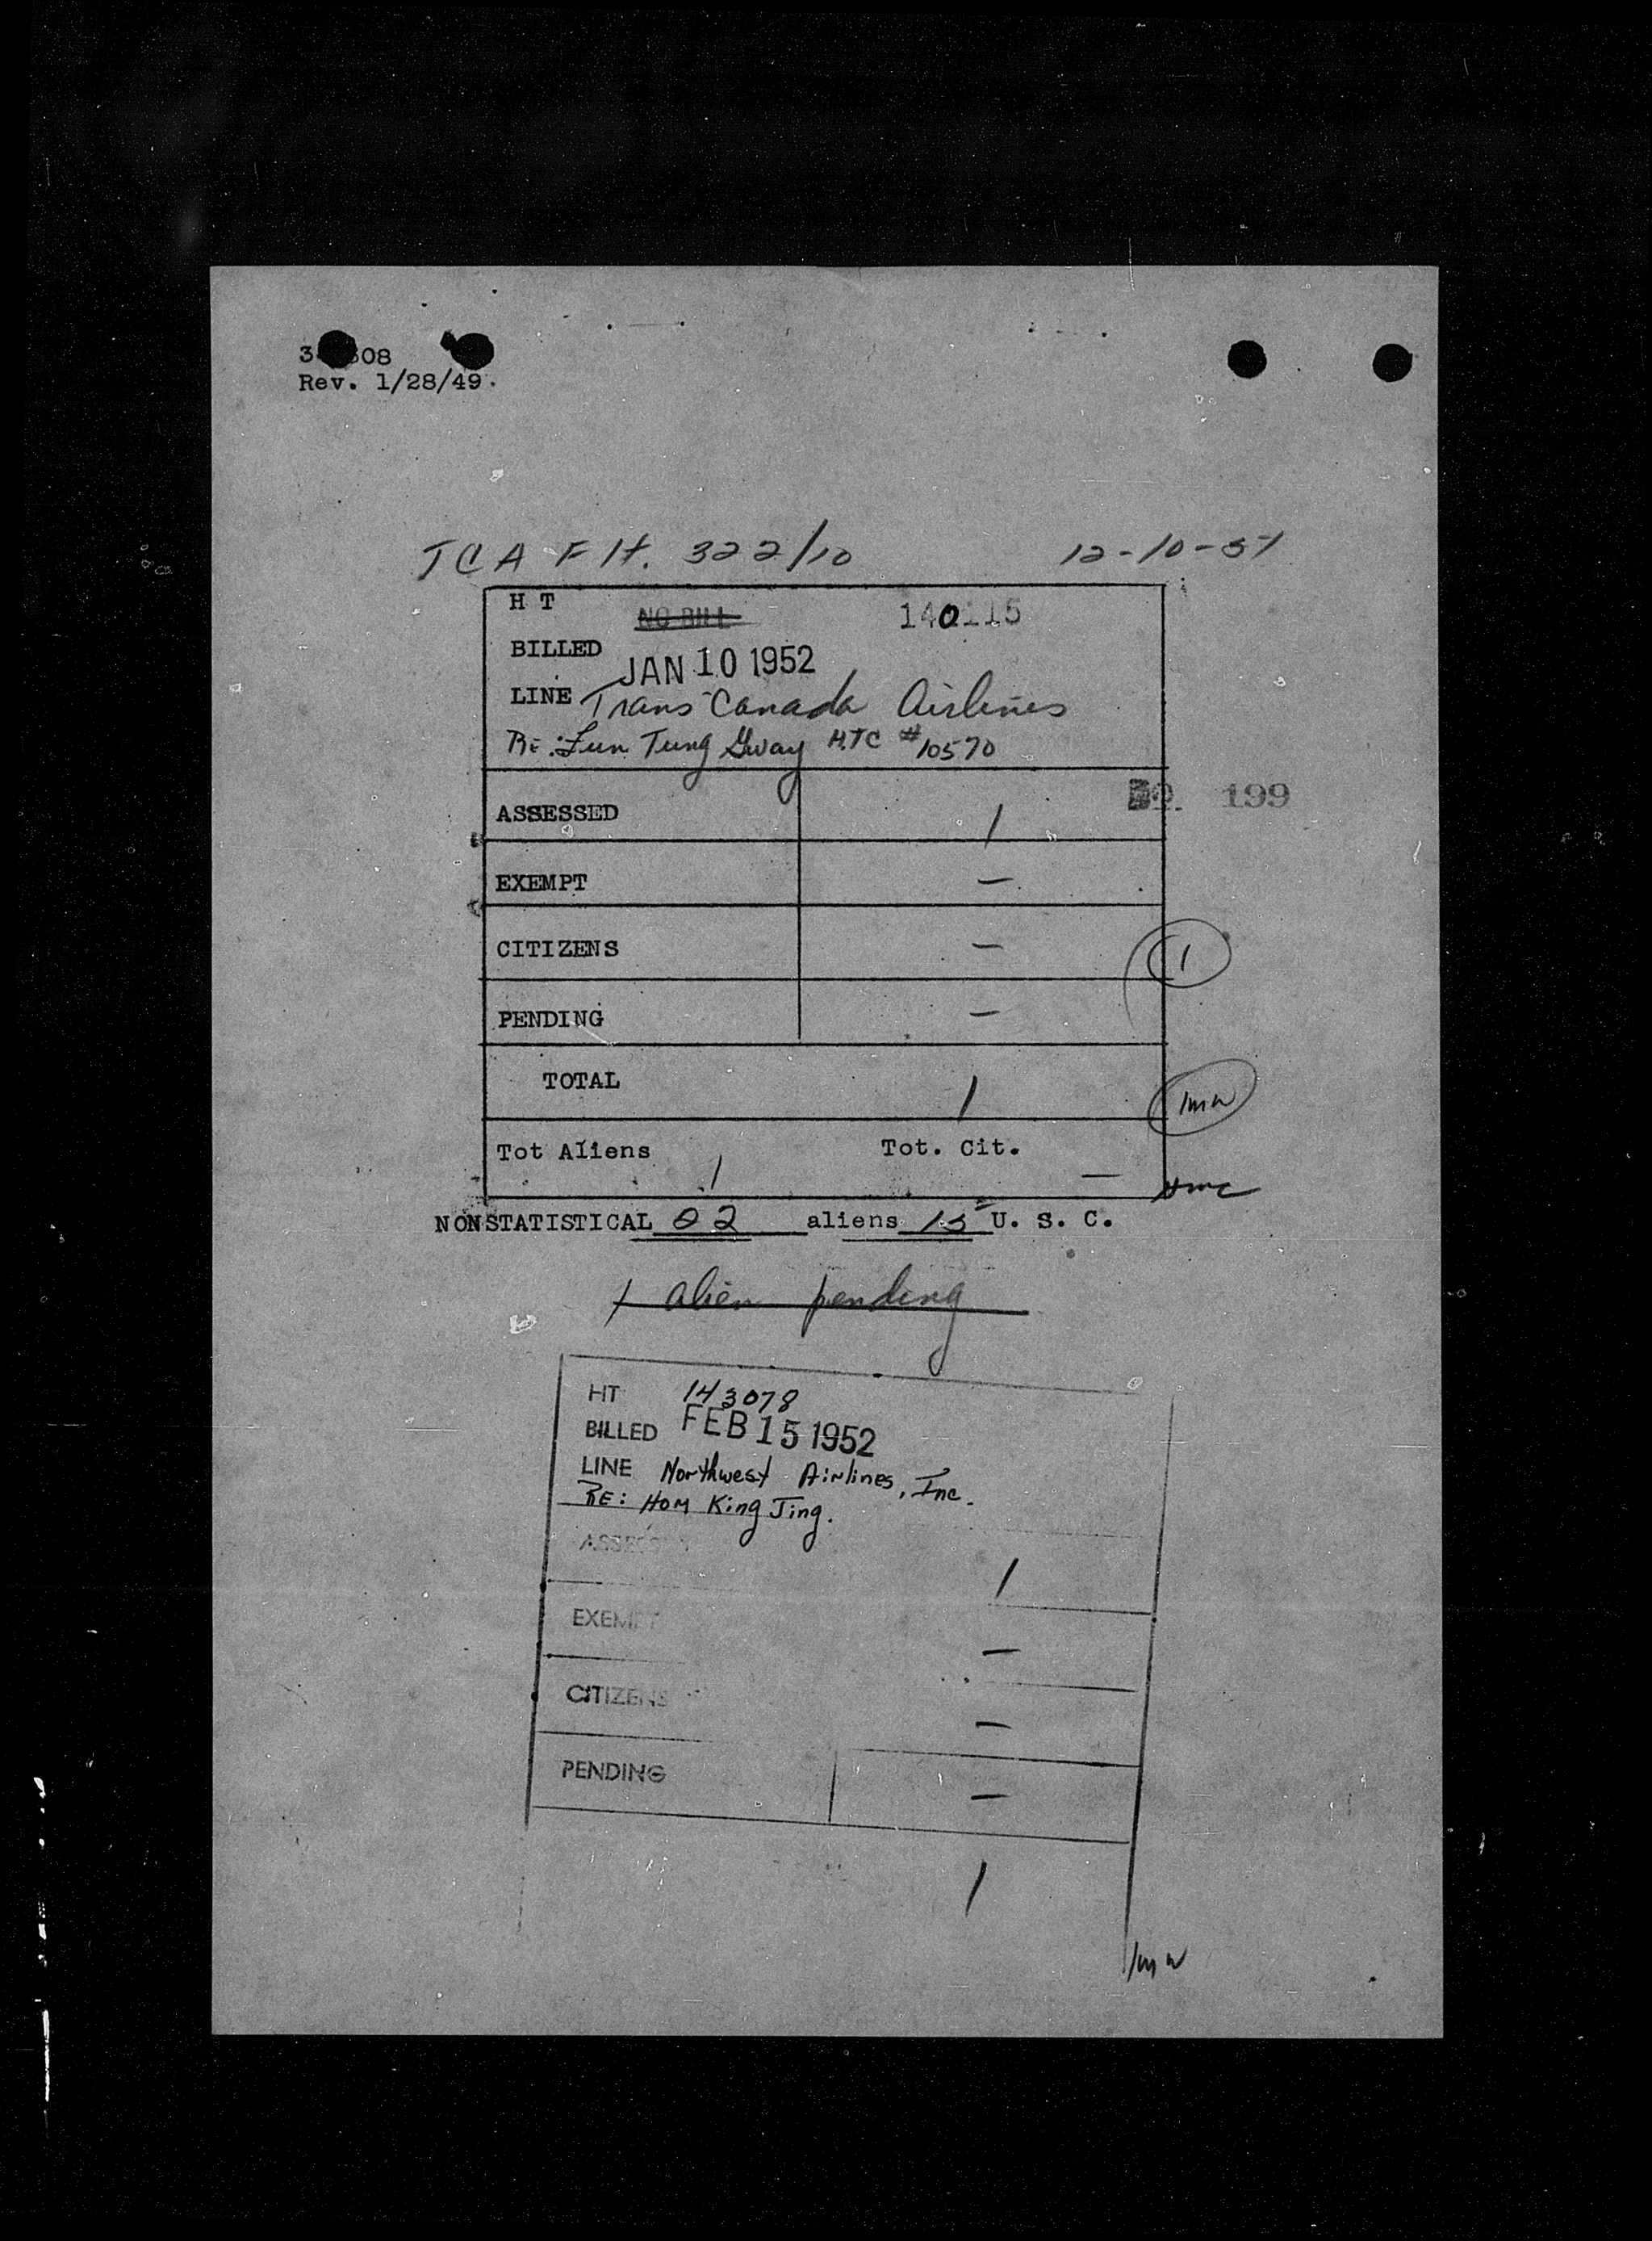 Rev. 1/28/49.
TCA Flt. 322/10 12-10-51
H T NO BILL 140115
BILLED JAN 10 1952
LINE Trans Canada Airlines
RE: Lun Tung Gway HTC #10570
199
ASSESSED 1
EXEMPT —
CITIZENS — 1
PENDING —
TOTAL 1 lmw
Tot Aliens 1 Tot. Cit. —
NONSTATISTICAL 02 aliens 15 U. S. C.
1 alien pending
HT 143078
BILLED FEB 15 1952
LINE Northwest Airlines, Inc.
RE: Hom King Jing.
ASSESSED 1
EXEMPT —
CITIZENS —
PENDING —
1
lmw